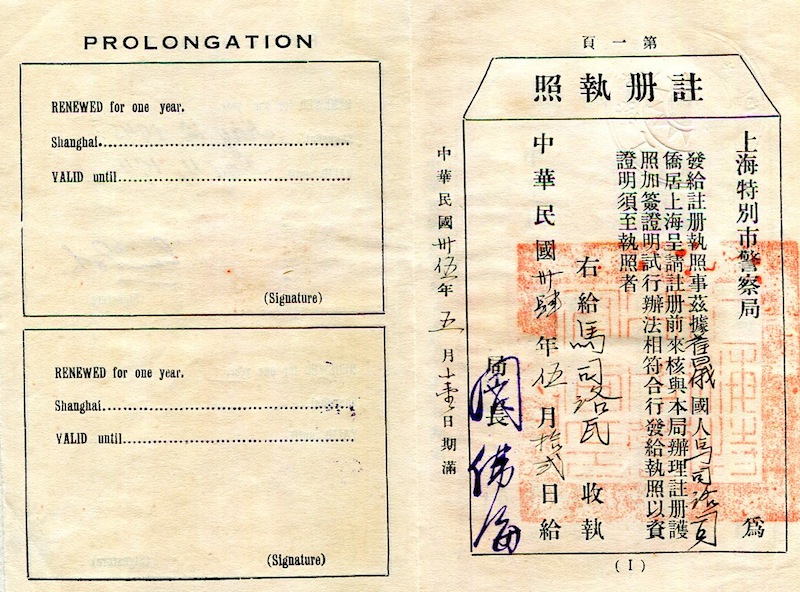 PROLONGATION
RENEWED for one year.
Shanghai
VALID until
(Signature)
RENEWED for one year.
Shanghai
VALID until
(Signature)
第一頁
註册執照
上海特別市警察局 為
發給註册執照事茲據舊 國人馬司洛
僑居上海呈請註册前來核與本局辦理註册護
照加簽證明試行辦法相符合行發給執照以資
證明須至執照者
右給馬司洛瓦收執
中華民國卅肆年伍月拾弍日給
局長
中華民國卅伍年五月十壹日期滿
( I )